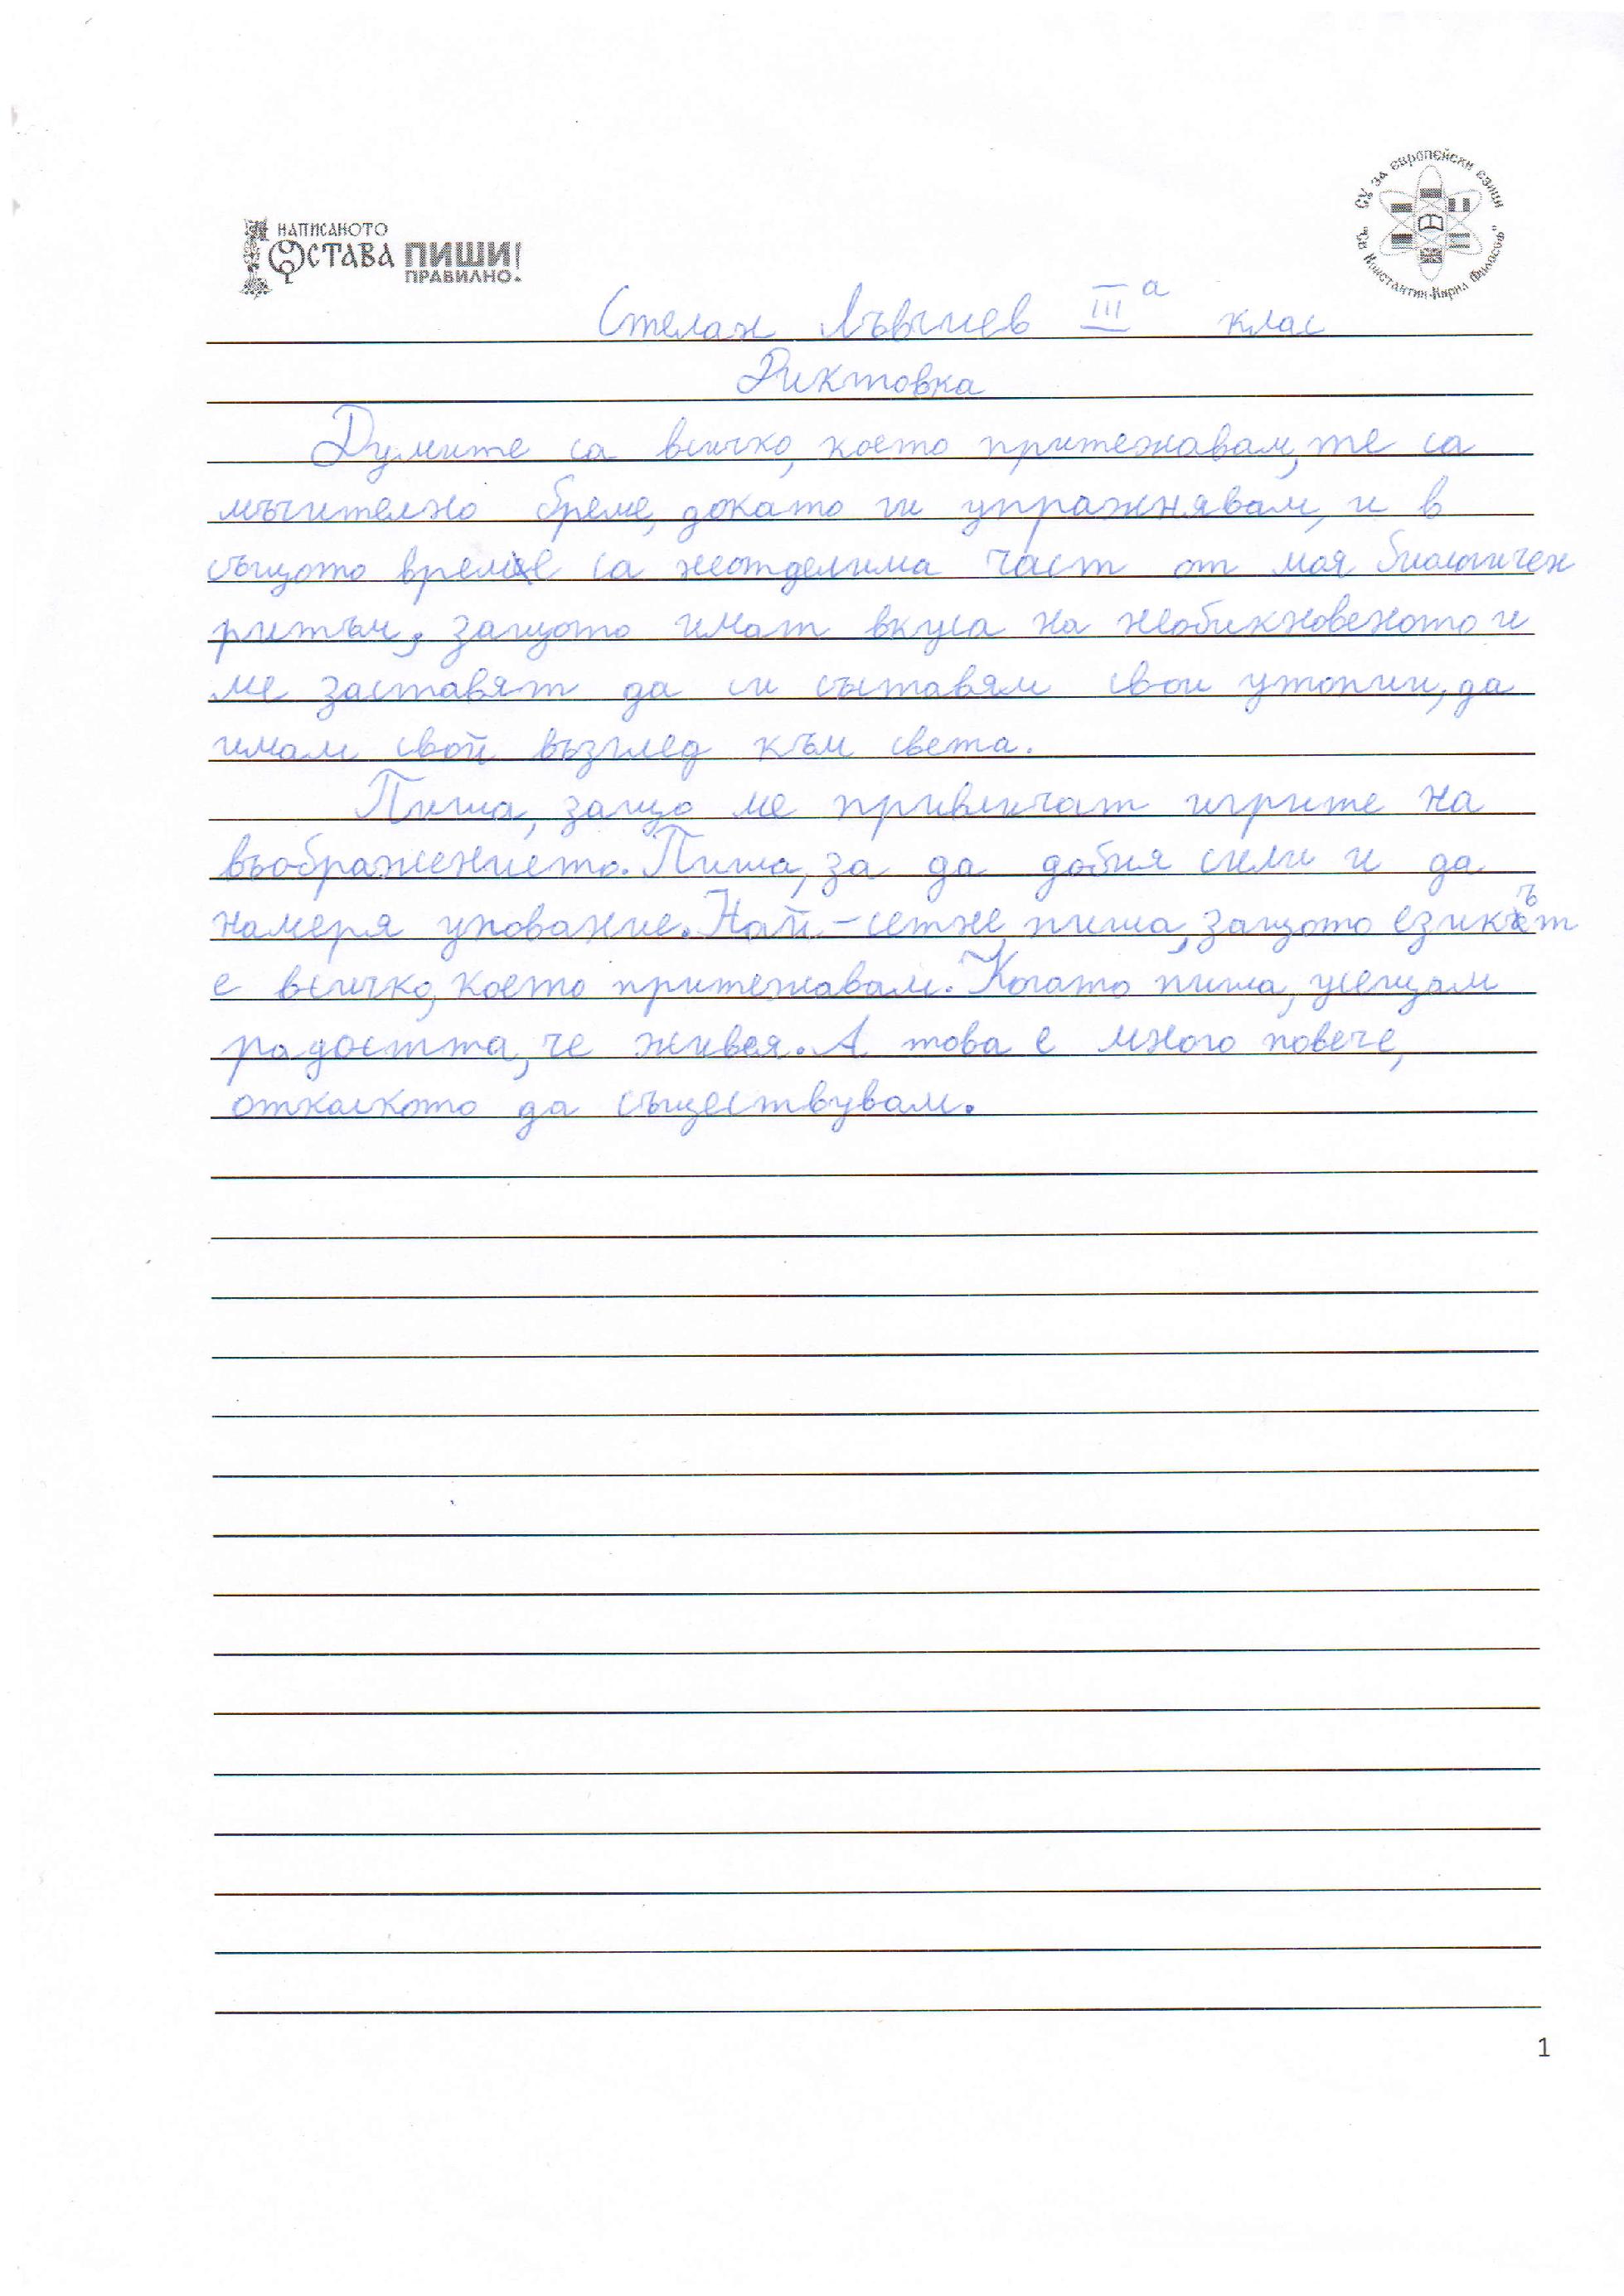 СУ за европейски езици
"Св. Константин-Кирил Философ"
НАПИСАНОТО
ОСТАВА ПИШИ!
ПРАВИЛНО.
Стелан Лъвчиев III а клас
Диктовка
Думите са всичко, което притежавам, те са
мъчително бреме, докато ги упражнявам, и в
същото време са неотделима част от моя биологичен
ритъм, защото имат вкуса на необикновеното и
ме заставят да си съставям свои утопии, да
имам свой възглед към света.
Пиша, защо ме привличат игрите на
въображението. Пиша, за да добия сили и да
намеря упование. Най-сетне пиша, защото езикът
е всичко, което притежавам. Когато пиша, усещам
радостта, че живея. А това е много повече,
отколкото да съществувам.
1